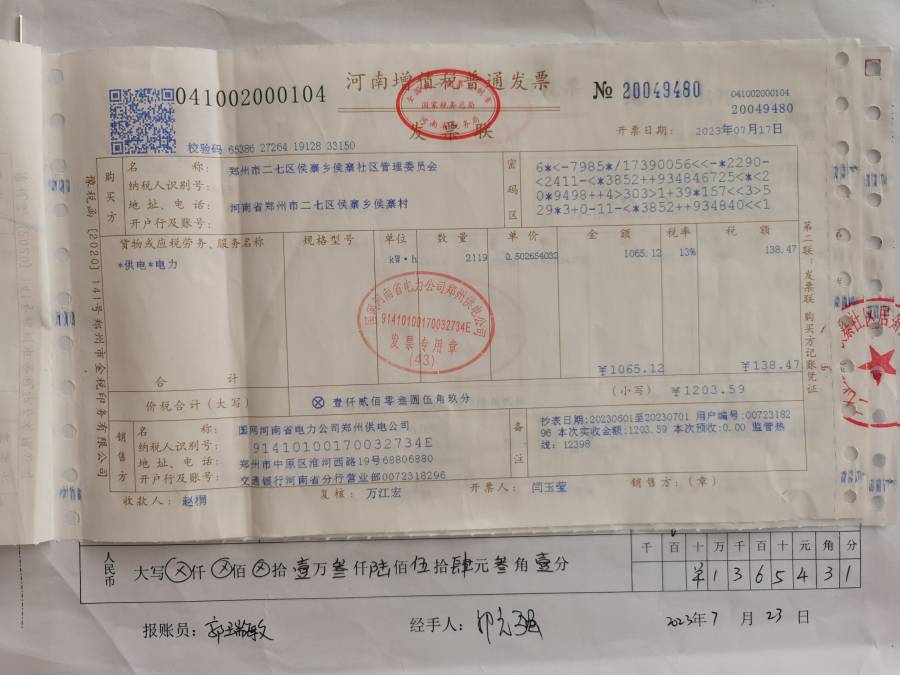 河南增值税普通发票
发票联
041002000104
№ 20049480
041002000104
20049480
校验码 65386 27264 19128 33150
开票日期: 2023年07月17日
购买方
名 称: 郑州市二七区侯寨乡侯寨社区管理委员会
纳税人识别号:
地址、电话: 河南省郑州市二七区侯寨乡侯寨村
开户行及账号:
密码区
6*<-7985*/17390056<<-*2290-
<2411-<*3852++934846725<*<2
0*9498++4>303>1+39*157<<3>5
29*3+0-11-<*3852++934840<<1
货物或应税劳务、服务名称 规格型号 单位 数量 单价 金额 税率 税额
*供电*电力 kW·h 2119 0.502654032 1065.12 13% 138.47
合计 ¥1065.12 ¥138.47
价税合计(大写) ⊗ 壹仟贰佰零叁圆伍角玖分 (小写) ¥1203.59
销售方
名 称: 国网河南省电力公司郑州供电公司
纳税人识别号: 91410100170032734E
地址、电话: 郑州市中原区淮河西路19号68806880
开户行及账号: 交通银行河南省分行营业部0072318296
备注
抄表日期:20230601至20230701 用户编号:00723182
96 本次实收金额:1203.59 本次预收:0.00 监管热
线: 12398
收款人: 赵栩 复核: 万江宏 开票人: 闫玉莹 销售方:(章)
国家税务总局
河南省税务局
国网河南省电力公司郑州供电公司
91410100170032734E
发票专用章
(43)
豫税函[2020]141号郑州市金税印务有限公司
第二联:发票联 购买方记账凭证
人民币
大写⊗仟⊗佰⊗拾壹万叁仟陆佰伍拾肆元叁角壹分
千 百 十 万 千 百 十 元 角 分
¥ 1 3 6 5 4 3 1
报账员: 郭瑞敏 经手人: 2023年7月23日